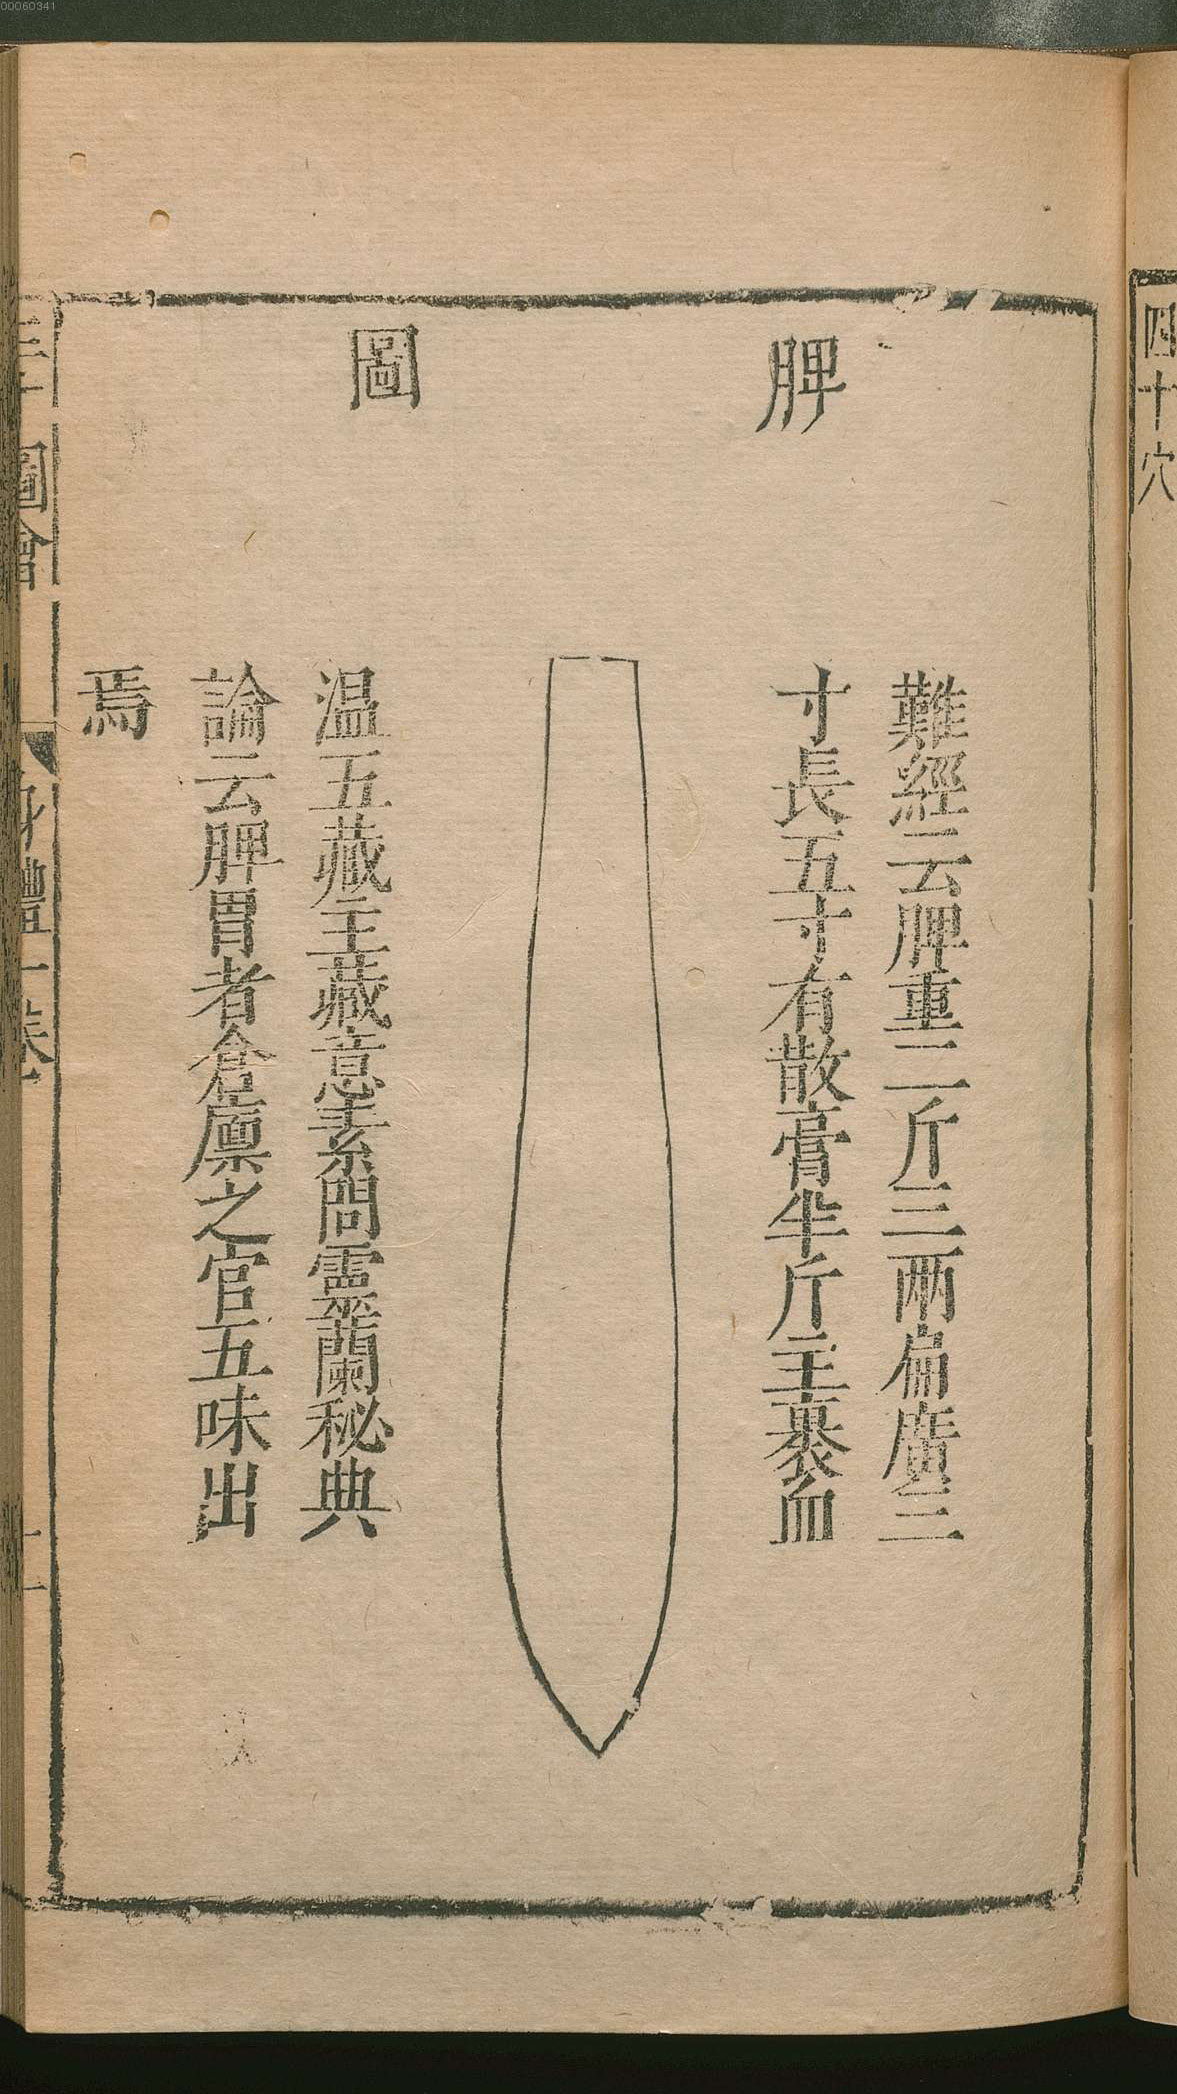 四十穴
脾圖
難經云脾重二斤三兩扁廣三
寸長五寸有散膏半斤主裹血
温五藏主藏意素問靈蘭秘典
論云脾胃者倉廩之官五味出
焉
圖會
身體一卷
00060341